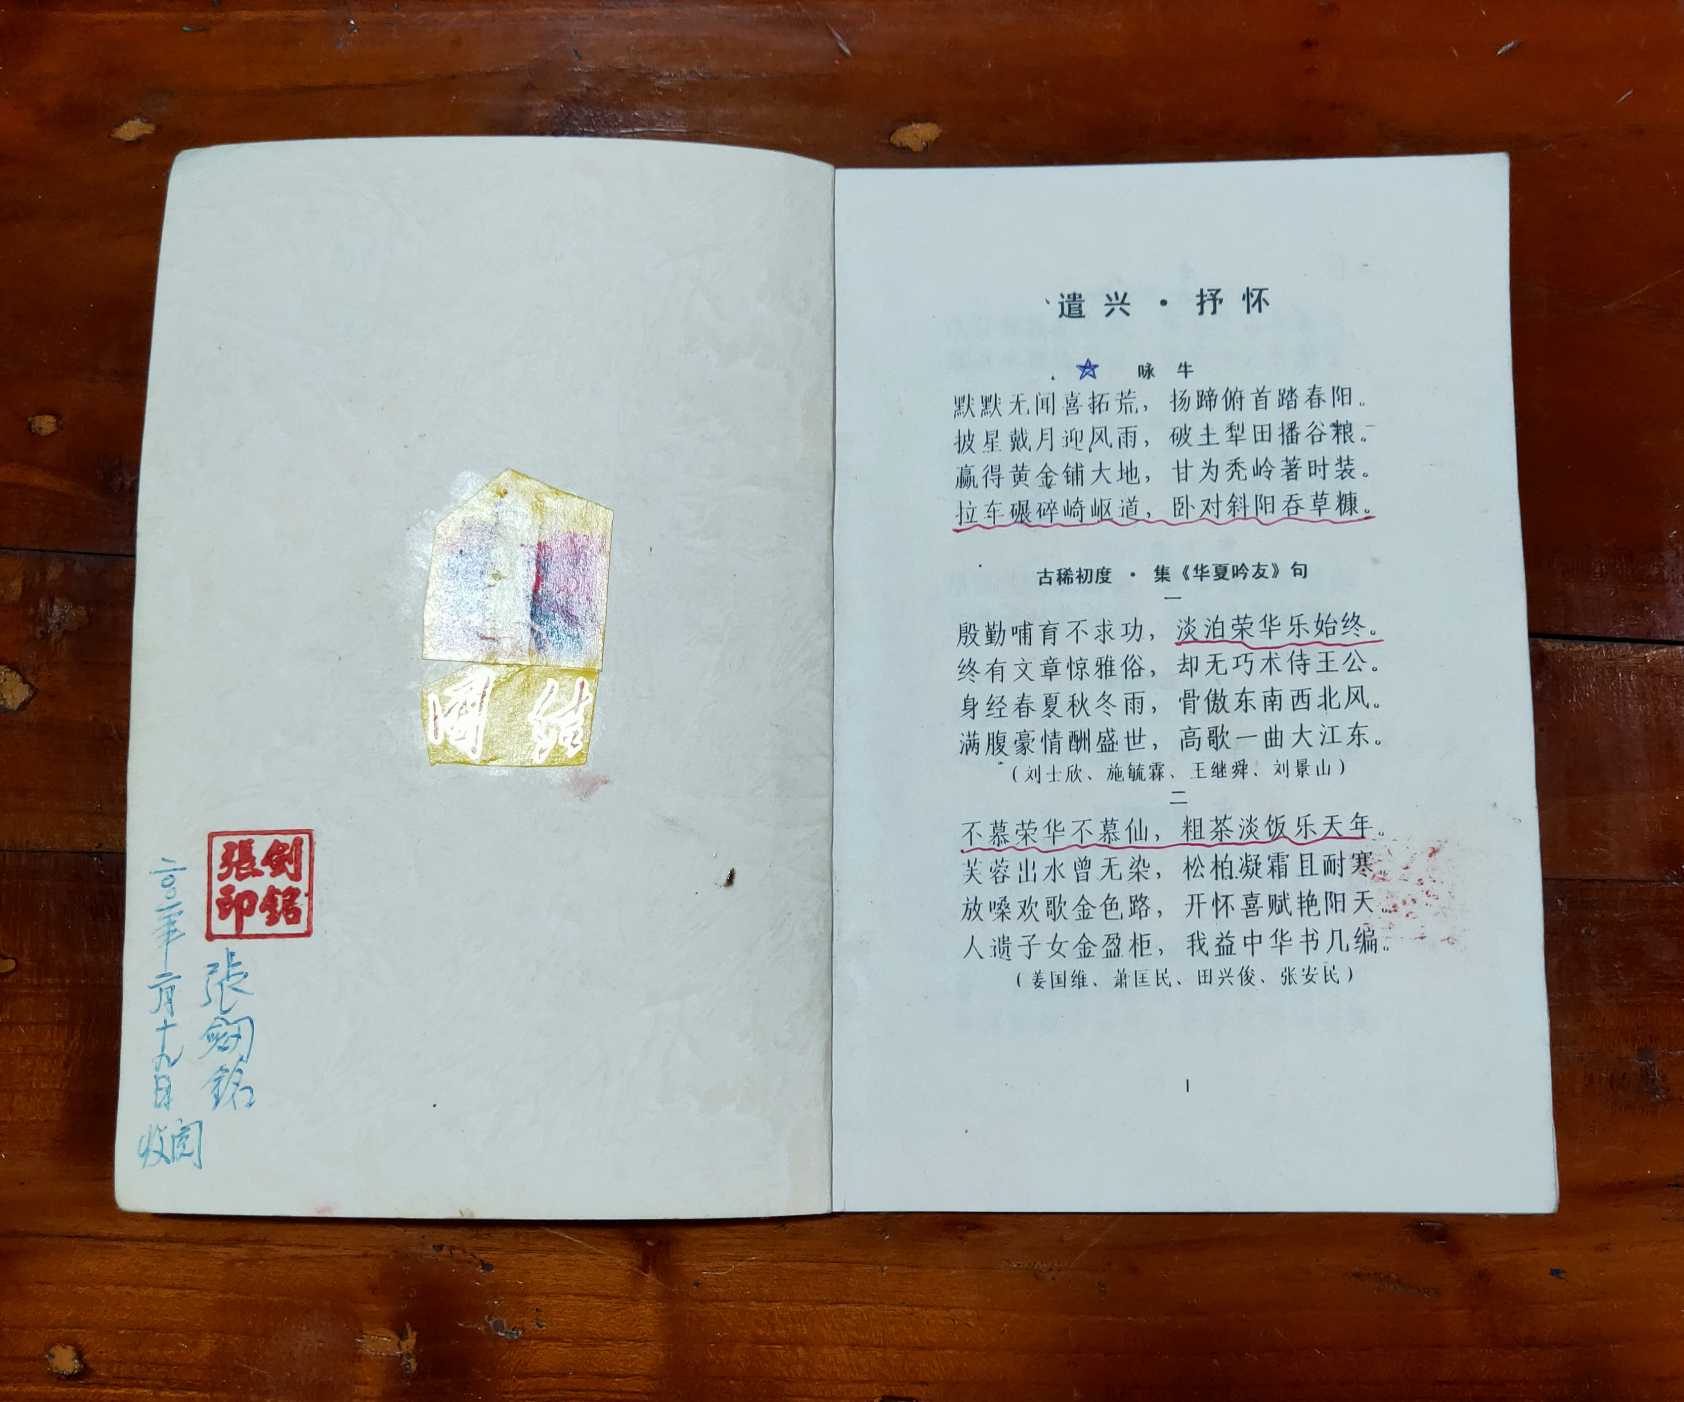 團結
張剑
印銘
張劍銘
二月十九日
遣兴·抒怀
☆ 咏牛
默默无闻喜拓荒，扬蹄俯首踏春阳。
披星戴月迎风雨，破土犁田播谷粮。
赢得黄金铺大地，甘为秃岭著时装。
拉车碾碎崎岖道，卧对斜阳吞草糠。
古稀初度·集《华夏吟友》句
一
殷勤哺育不求功，淡泊荣华乐始终。
终有文章惊雅俗，却无巧术侍王公。
身经春夏秋冬雨，骨傲东南西北风。
满腹豪情酬盛世，高歌一曲大江东。
（刘士欣、施毓霖、王继舜、刘景山）
二
不慕荣华不慕仙，粗茶淡饭乐天年。
芙蓉出水曾无染，松柏凝霜且耐寒。
放嗓欢歌金色路，开怀喜赋艳阳天。
人遗子女金盈柜，我益中华书几编。
（姜国维、萧匡民、田兴俊、张安民）
1